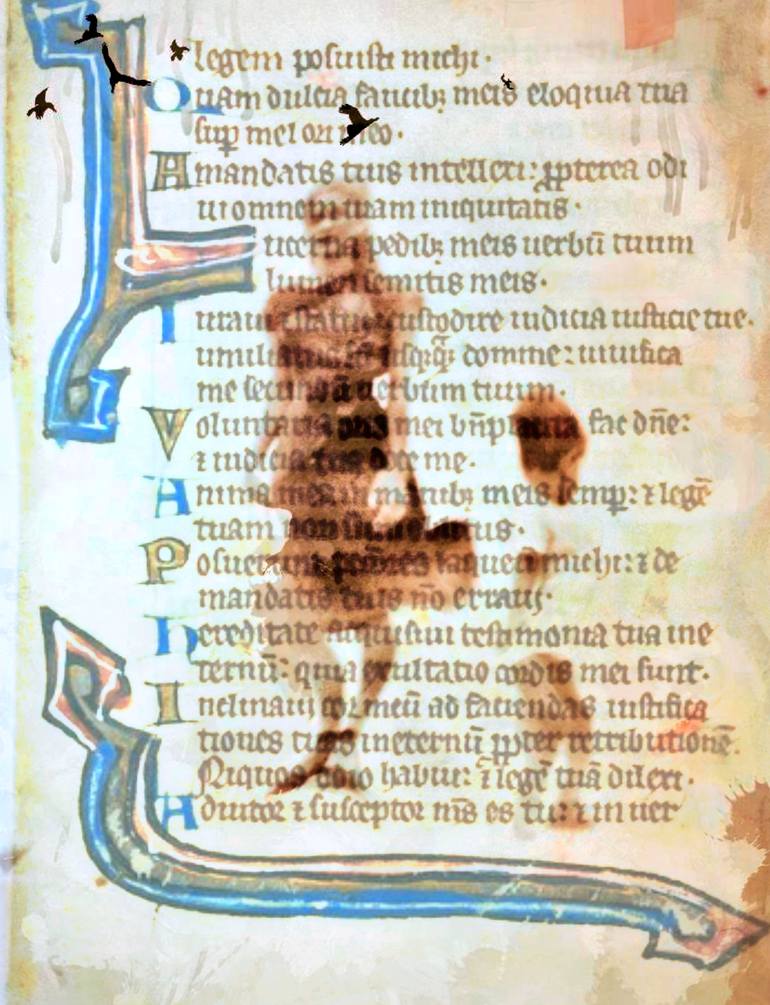 legem posuisti michi·
Quam dulcia faucibꝫ meis eloquia tua
suꝑ mel ori meo·
A mandatis tuis intellexi: ꝓpterea odi
ui omnem uiam iniquitatis·
Lucerna pedibꝫ meis uerbū tuum
lumen semitis meis·
Iuraui ⁊ statui custodire iudicia iusticie tue·
umiliatus usqꝫqꝫ domine: uiuifica
me secundū uerbum tuum·
Voluntaria oris mei bn̄placita fac dn̄e:
⁊ iudicia tua doce me·
Anima mea in manibꝫ meis semp: ⁊ legē
tuam non sum oblitus·
Posuerunt laqueū michi: ⁊ de
mandatis tuis nō erraui·
Hereditate acquisiui testimonia tua ine
ternū: quia exultatio cordis mei sunt·
Inclinaui cor meū ad faciendas iustifica
tiones tuas ineternū ꝓpter retributionē·
Iniquos odio habui: ⁊ legē tuā dilexi·
Adiutor ⁊ susceptor ms̄ es tu: ⁊ in uer